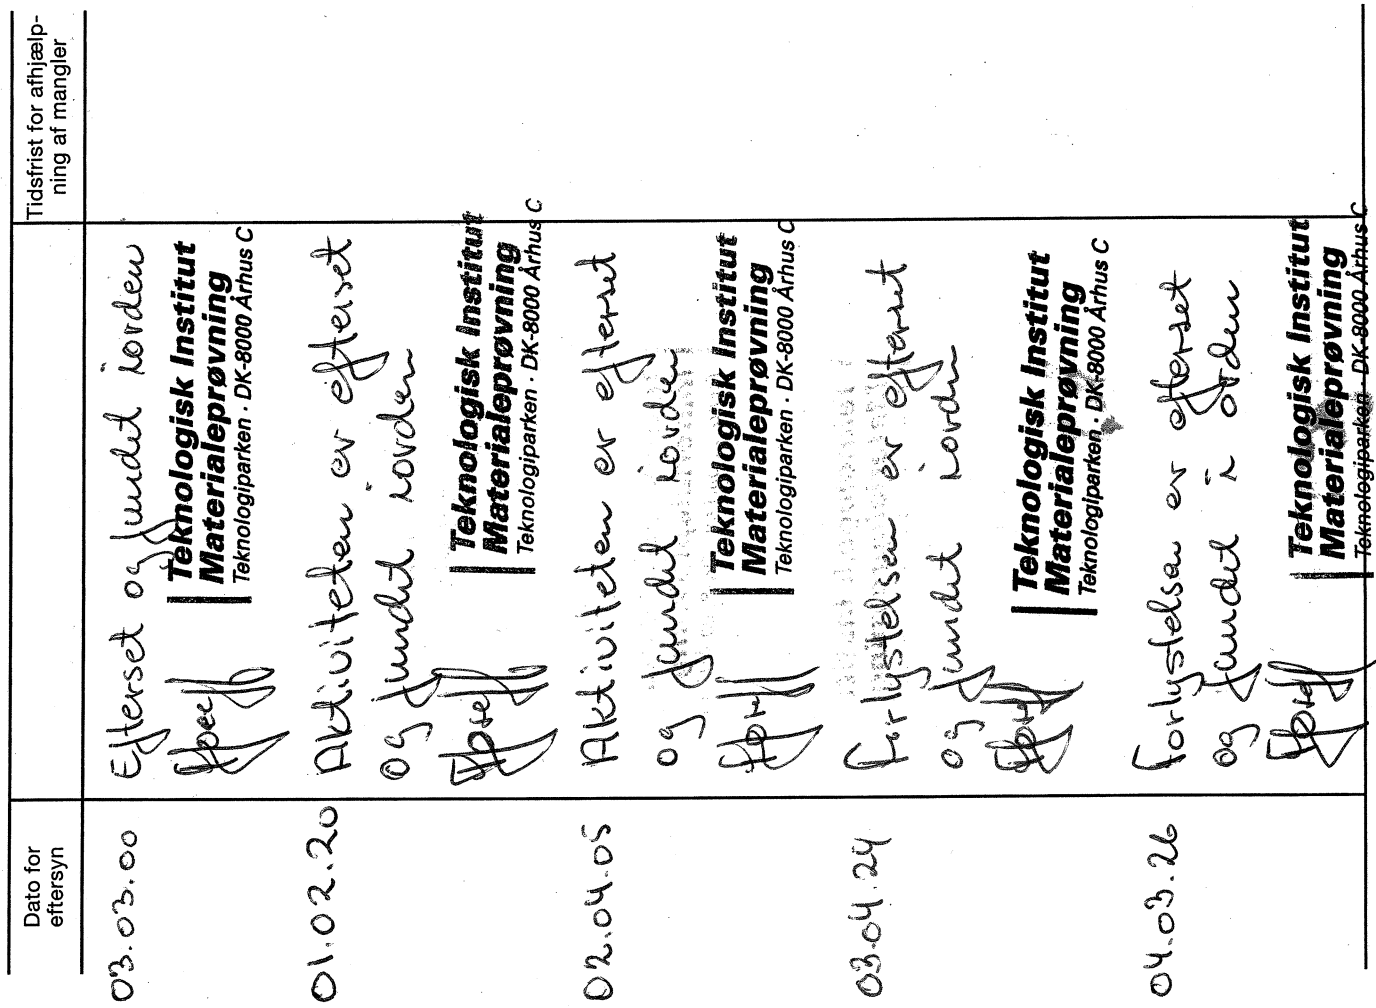 Dato for
eftersyn
Tidsfrist for afhjælp-
ning af mangler
03.03.00
Efterset og fundet iorden
Teknologisk Institut
Materialeprøvning
Teknologiparken · DK-8000 Århus C
01.02.20
Aktiviteten er efterset
og fundet iorden
Teknologisk Institut
Materialeprøvning
Teknologiparken · DK-8000 Århus C
02.04.05
Aktiviteten er efterset
og fundet iorden
Teknologisk Institut
Materialeprøvning
Teknologiparken · DK-8000 Århus C
03.04.24
Forlystelsen er efterset
og fundet iorden
Teknologisk Institut
Materialeprøvning
Teknologiparken · DK-8000 Århus C
04.03.26
Forlystelsen er efterset
og fundet i orden
Teknologisk Institut
Materialeprøvning
Teknologiparken · DK-8000 Århus C